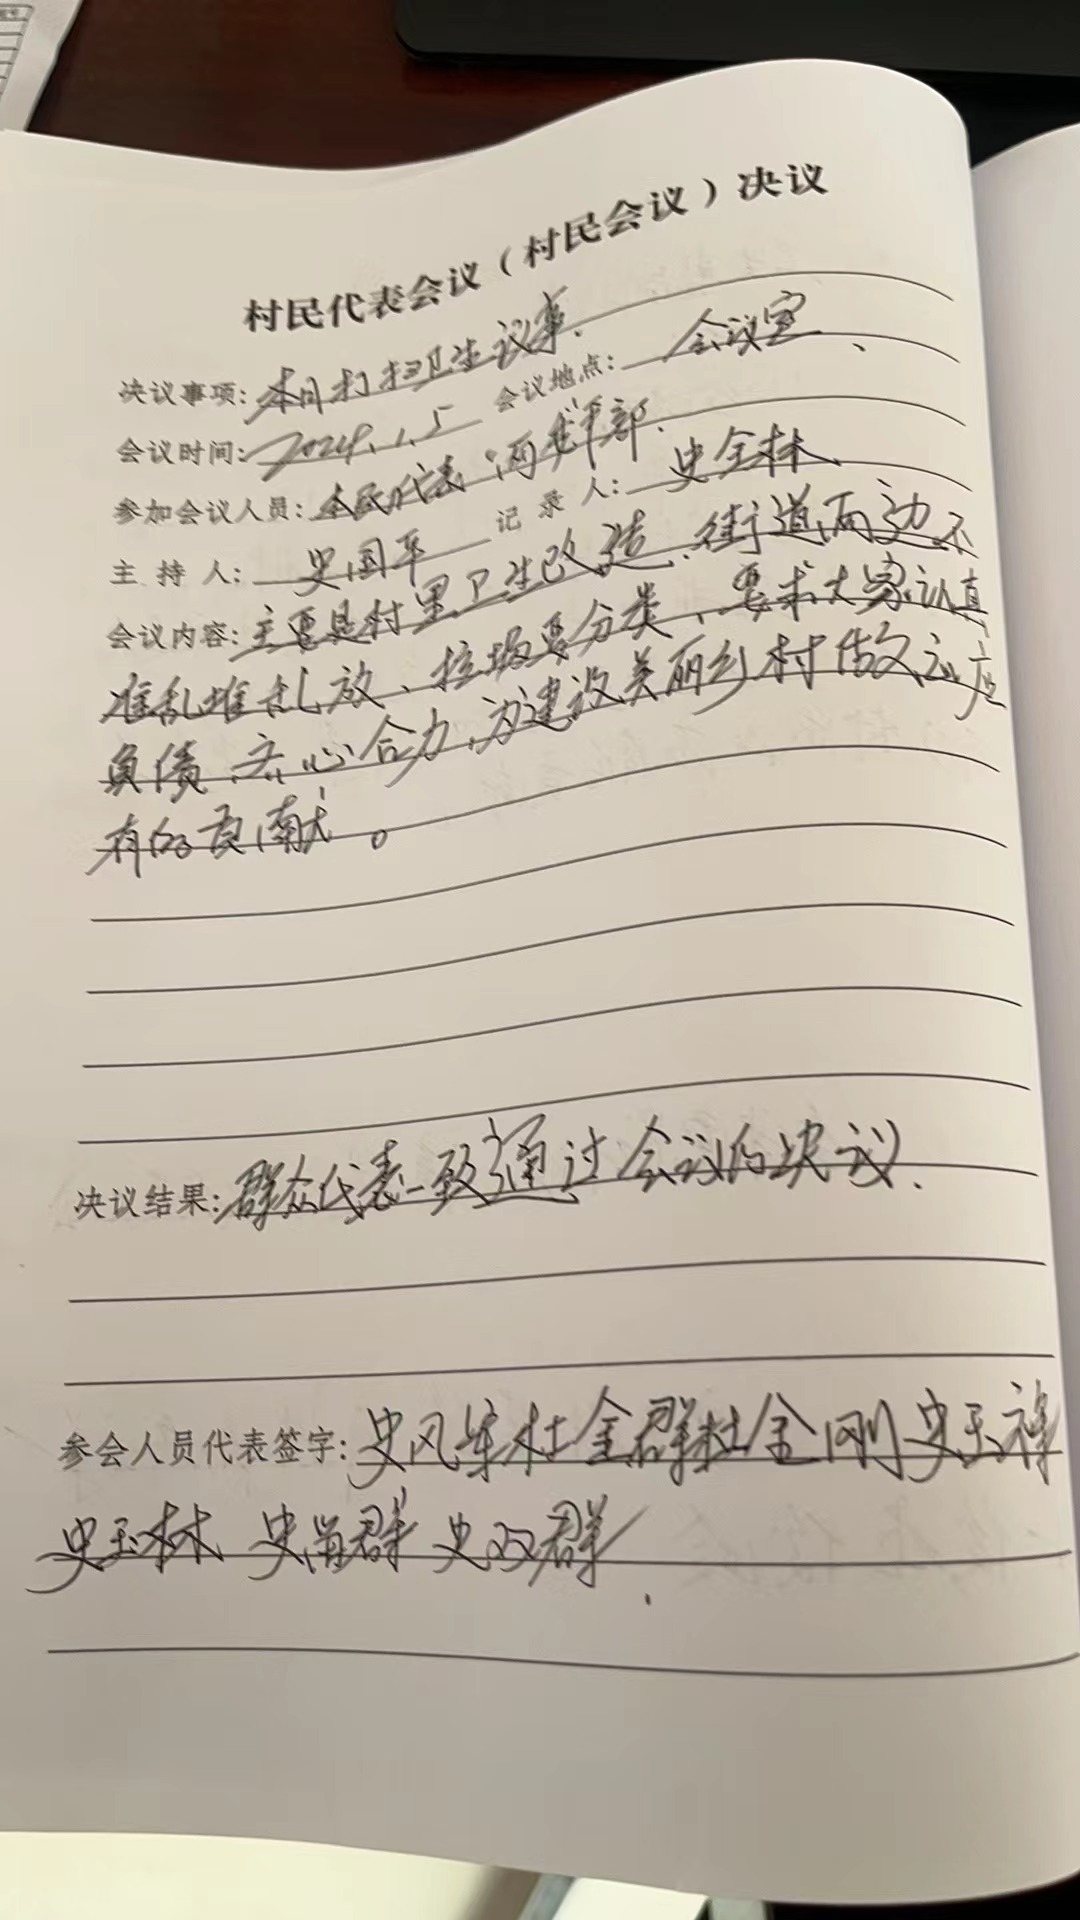 村民代表会议（村民会议）决议
决议事项：本月打扫卫生议事.
会议时间：2024.1.5 会议地点：会议室、
参加会议人员：村民代表、两委干部.
主持人：史国平 记录人：史全林、
会议内容：主要是村里卫生改造、街道两边不
准乱堆乱放、垃圾要分类、要求大家认真
负债、齐心合力,为建设美丽乡村做应
有的贡献。
决议结果：群众代表一致通过会议的决议.
参会人员代表签字：史风岸 杜金群 杜金刚 史玉祥
史玉林 史留群 史双群.